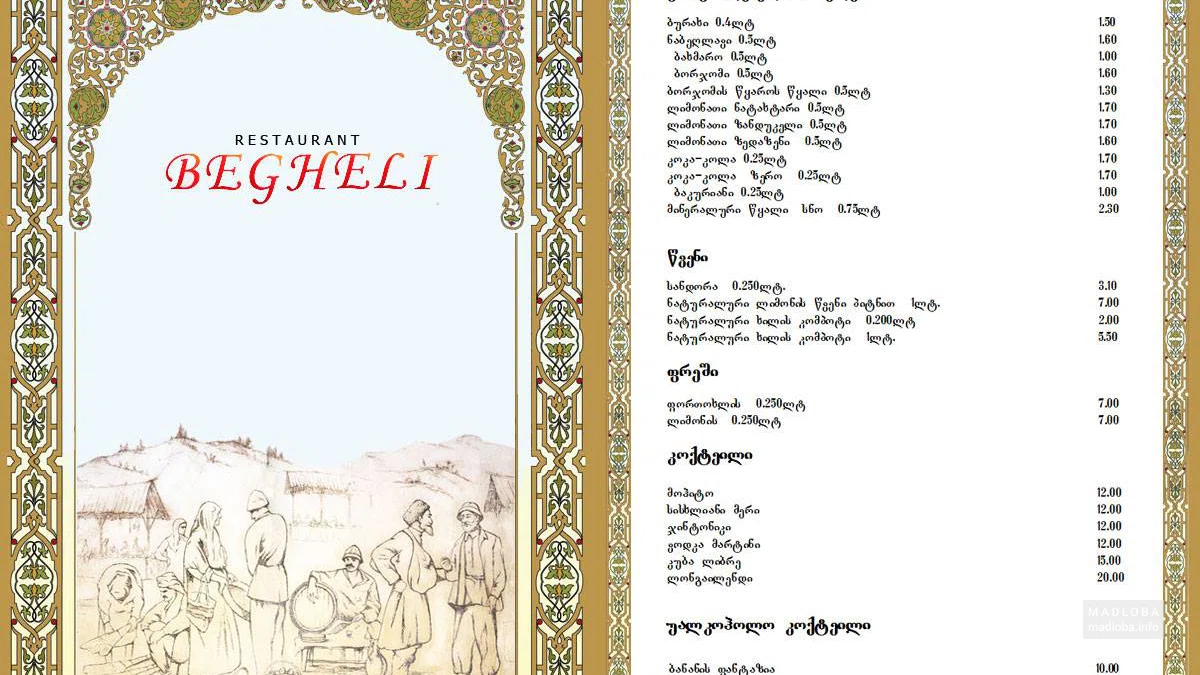 RESTAURANT
BEGHELI
ბურახი 0.4ლტ 1.50
ნაბეღლავი 0.5ლტ 1.60
ბახმარო 0.5ლტ 1.00
ბორჯომი 0.5ლტ 1.60
ბორჯომის წყაროს წყალი 0.5ლტ 1.30
ლიმონათი ნატახტარი 0.5ლტ 1.70
ლიმონათი ზანდუკელი 0.5ლტ 1.70
ლიმონათი ზედაზენი 0.5ლტ 1.60
კოკა-კოლა 0.25ლტ 1.70
კოკა-კოლა ზერო 0.25ლტ 1.70
ბაკურიანი 0.25ლტ 1.00
მინერალური წყალი სნო 0.75ლტ 2.30
წვენი
სანდორა 0.250ლტ. 3.10
ნატურალური ლიმონის წვენი პიტნით 1ლტ. 7.00
ნატურალური ხილის კომპოტი 0.200ლტ 2.00
ნატურალური ხილის კომპოტი 1ლტ. 5.50
ფრეში
ფორთოხლის 0.250ლტ 7.00
ლიმონის 0.250ლტ 7.00
კოქტეილი
მოჰიტო 12.00
სისხლიანი მერი 12.00
ჯინტონიკი 12.00
ვოდკა მარტინი 12.00
კუბა ლიბრე 15.00
ლონგაილენდი 20.00
უალკოჰოლო კოქტეილი
ბანანის ფანტაზია 10.00
MADLOBA
madloba.info